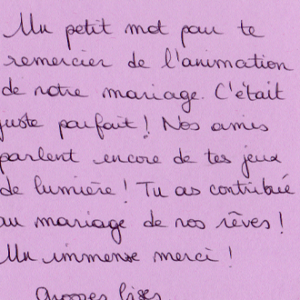 Un petit mot pour te
remercier de l'animation
de notre mariage. C'était
juste parfait ! Nos amis
parlent encore de tes jeux
de lumière ! Tu as contribué
au mariage de nos rêves !
Un immense merci !
Grosses bises